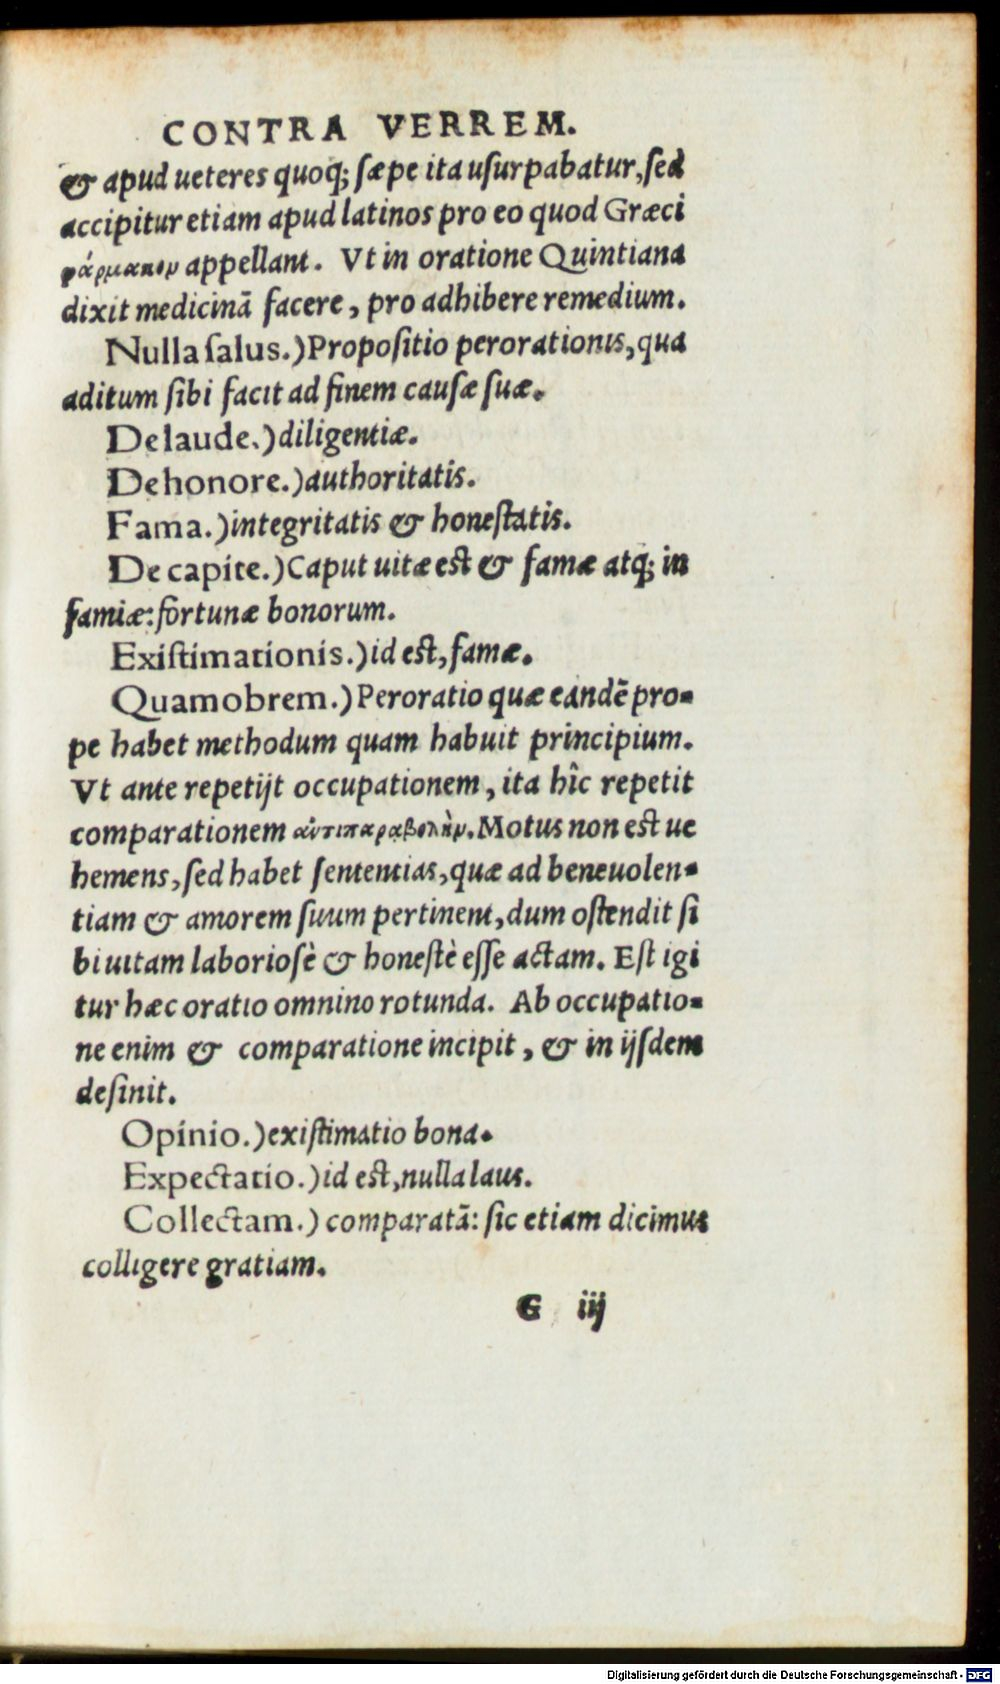 CONTRA VERREM.
& apud ueteres quoq; sæpe ita usurpabatur, sed
accipitur etiam apud latinos pro eo quod Græci
φάρμακον appellant. Vt in oratione Quintiana
dixit medicinā facere, pro adhibere remedium.
Nulla salus.) Propositio perorationis, qua
aditum sibi facit ad finem causæ suæ.
De laude.) diligentiæ.
De honore.) authoritatis.
Fama.) integritatis & honestatis.
De capite.) Caput uitæ est & famæ atq; in
famiæ: fortunæ bonorum.
Existimationis.) id est, famæ.
Quamobrem.) Peroratio quæ eandē pro-
pe habet methodum quam habuit principium.
Vt ante repetijt occupationem, ita hîc repetit
comparationem ἀντιπαραβολὴν. Motus non est ue
hemens, sed habet sententias, quæ ad beneuolen-
tiam & amorem suum pertinent, dum ostendit si
bi uitam laboriosè & honestè esse actam. Est igi
tur hæc oratio omnino rotunda. Ab occupatio-
ne enim & comparatione incipit, & in ijsdem
desinit.
Opinio.) existimatio bona.
Expectatio.) id est, nulla laus.
Collectam.) comparatā: sic etiam dicimus
colligere gratiam.
G iij
Digitalisierung gefördert durch die Deutsche Forschungsgemeinschaft - DFG